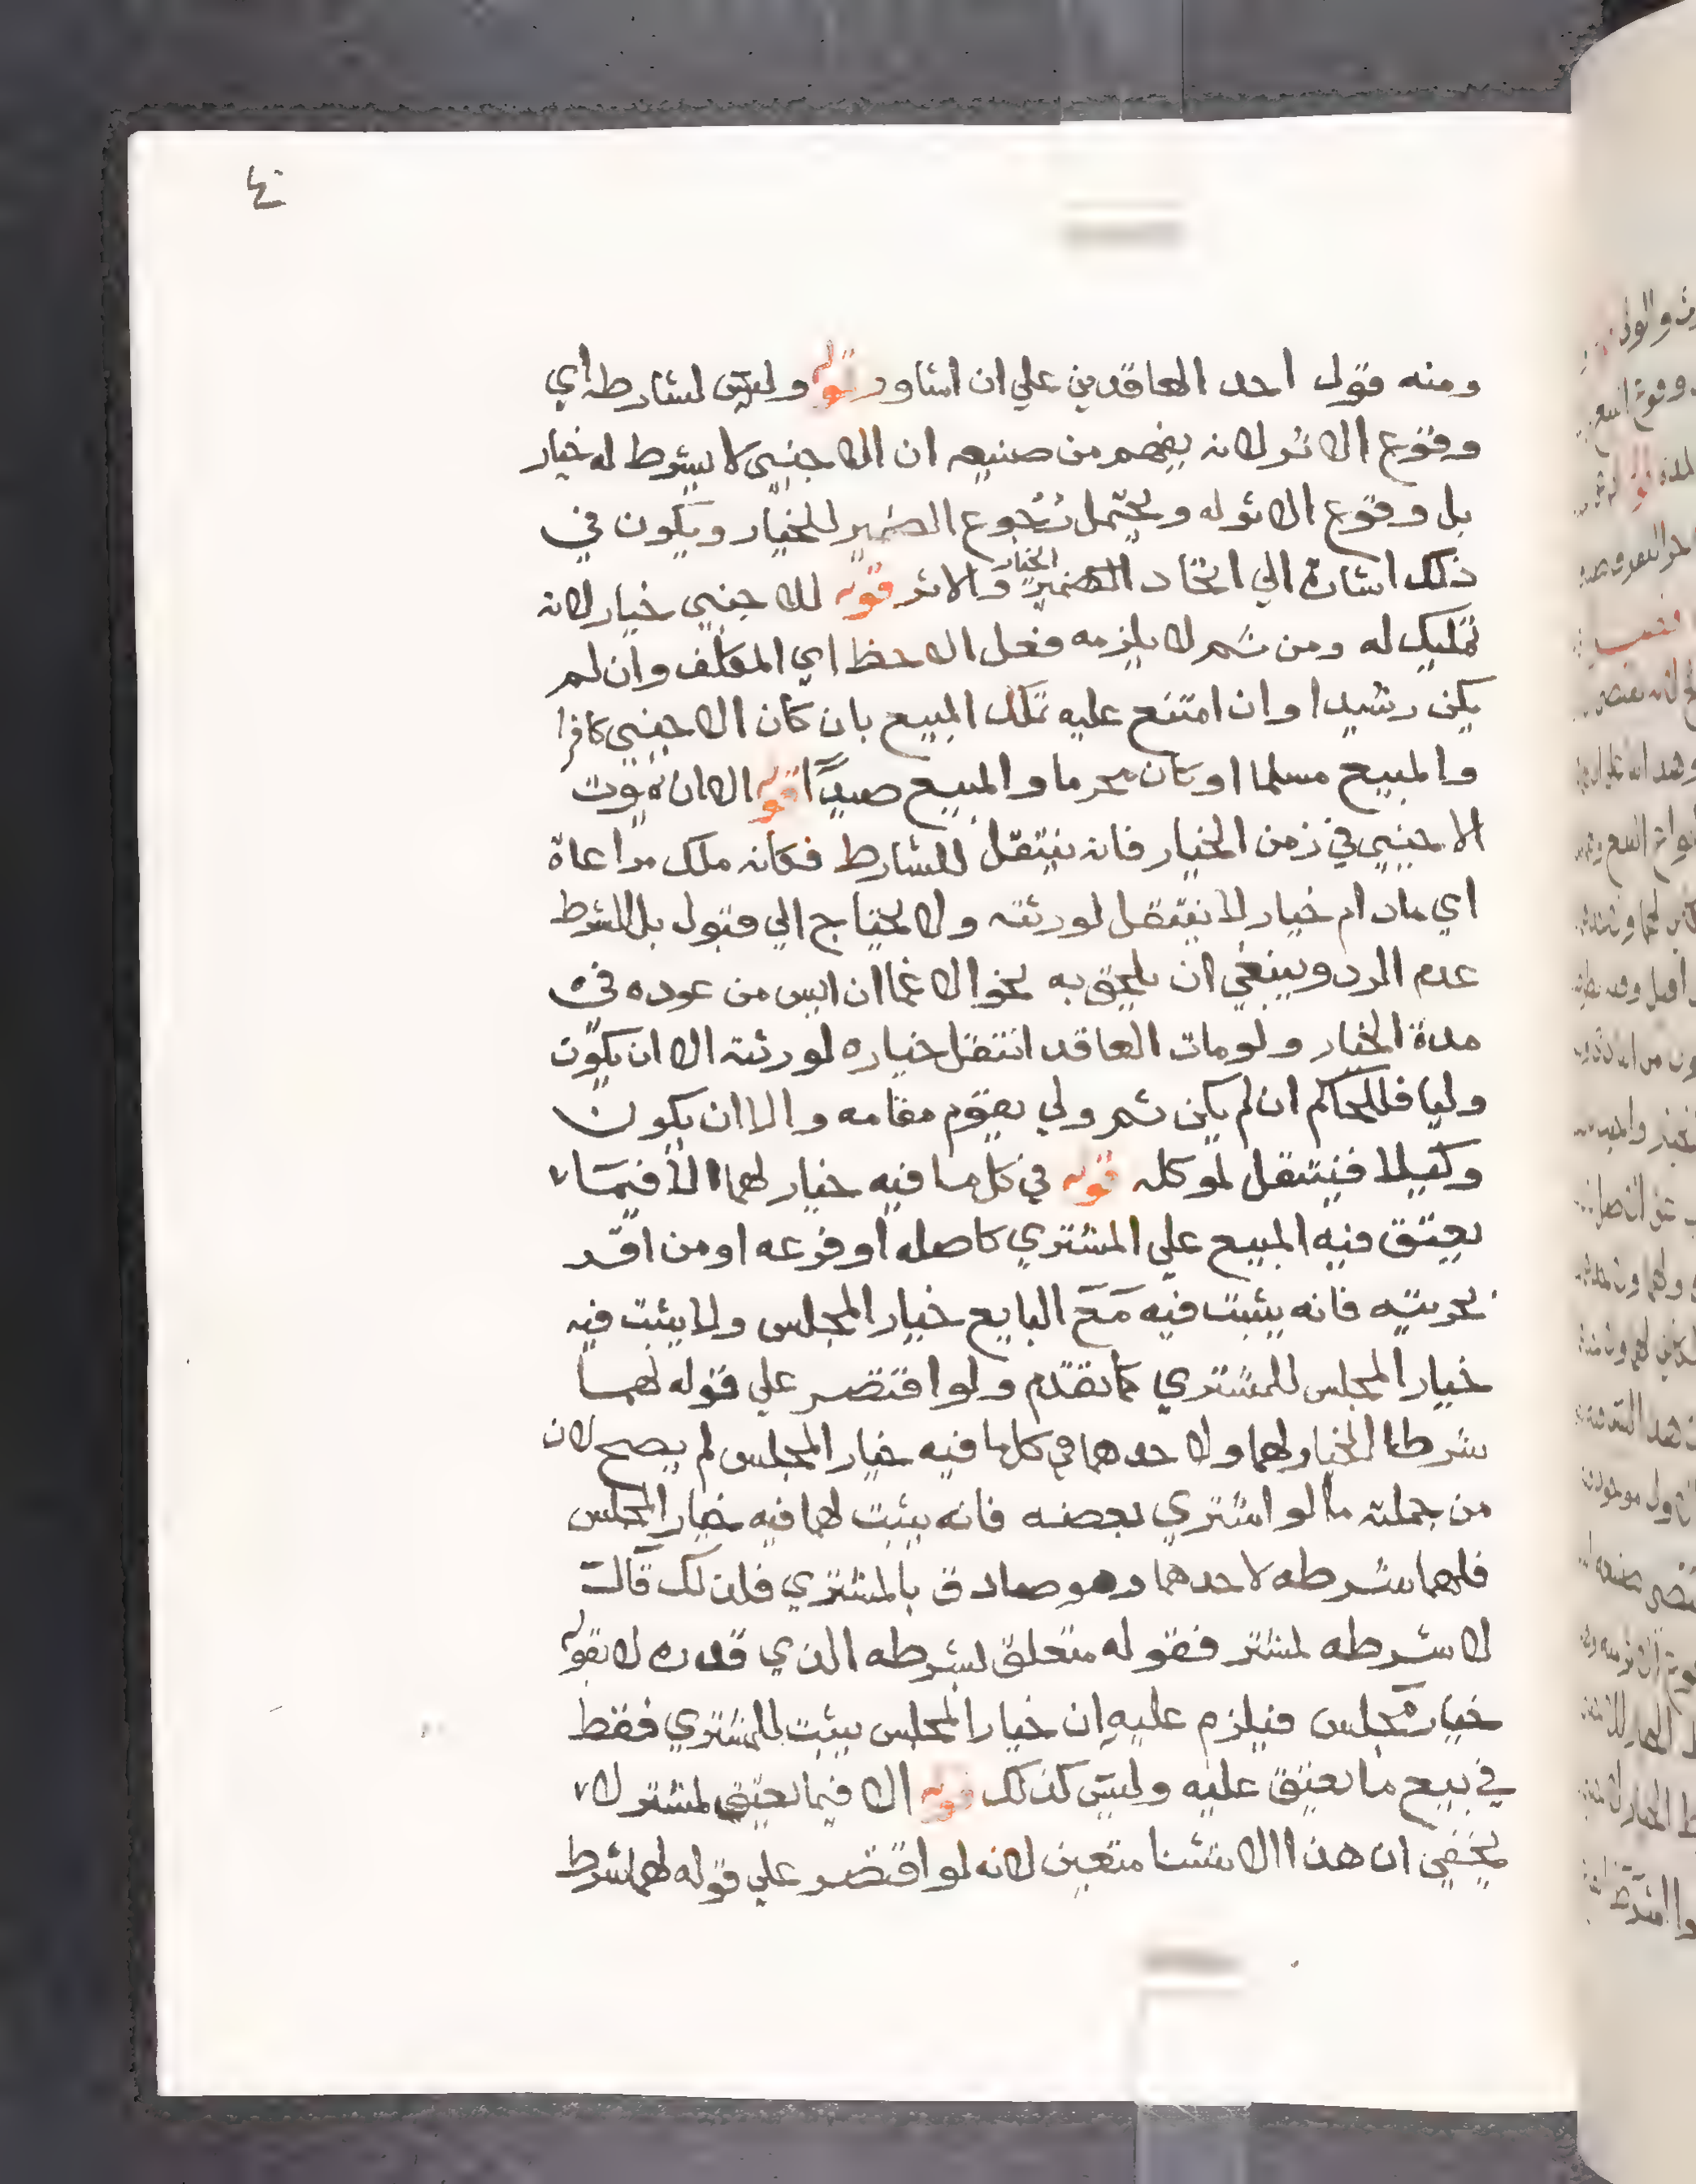 ٤٠
ومنه قول احد العاقدين علي ان اشاور قوله وليس لشارطه اي
وقوع الاثر لانه يفهم من صنيعه ان الاجنبي لا يشرط له خيار
بل وقوع الاثر له ويحتمل رجوع الضمير للخيار ويكون في
ذلك اشارة الي اتحاد الضمير الخيار والاثر قوله للاجنبي خيار لانه
تمليك له ومن ثم لا يلزمه فعل الاحظ اي المكلف وان لم
يكن رشيدا وان امتنع عليه تملك المبيع بان كان الاجنبي كافرا
والمبيع مسلما او كان محرما والمبيع صيدا قوله الا ان يموت
الاجنبي في زمن الخيار فانه ينتقل للشارط فكانه ملك مراعاة
اي مادام خيار لا ينتقل لورثته ولا يحتاج الي قبول بل الشرط
عدم الرد وينبغي ان يلحق به نحو الاغما ان ايس من عوده في
مدة الخيار ولو مات العاقد انتقل خياره لورثته الا ان يكون
وليا فللحاكم ان لم يكن ثم ولي يقوم مقامه والا ان يكون
وكيلا فينتقل لموكله قوله في كل ما فيه خيار لهما الا فيما
يعتق فيه المبيع علي المشتري كاصله او فرعه او من اقر
بحريته فانه يثبت فيه مع البايع خيار المجلس ولا يثبت فيه
خيار المجلس للمشتري كما تقدم ولو اقتصر علي قوله لهما
شرط الخيار لهما ولاحدهما في كل ما فيه خيار المجلس لم يصح لان
من جملته ما لو اشتري بعضه فانه يثبت لهما فيه خيار المجلس
فلهما شرطه لاحدهما وهو صادق بالمشتري فلذلك قال
لا شرطه لمشتر فقوله متعلق بشرطه الذي قدره لا بقوله
خيار مجلس فيلزم عليه ان خيار المجلس يثبت للمشتري فقط
في بيع ما يعتق عليه وليس كذلك قوله الا فيما يعتق لمشتر لا
يخفي ان هذا الاستثنا متعين لانه لو اقتصر علي قوله لهما شرط